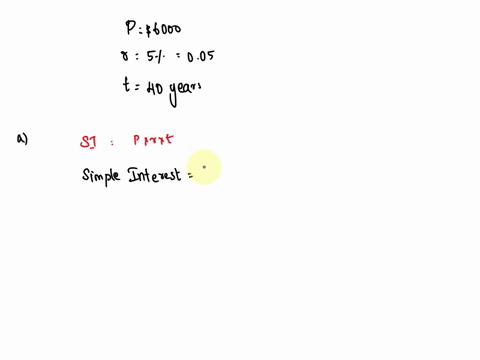 P = $6000
r = 5% = 0.05
t = 40 years
a) SI = P x r x t
Simple Interest =